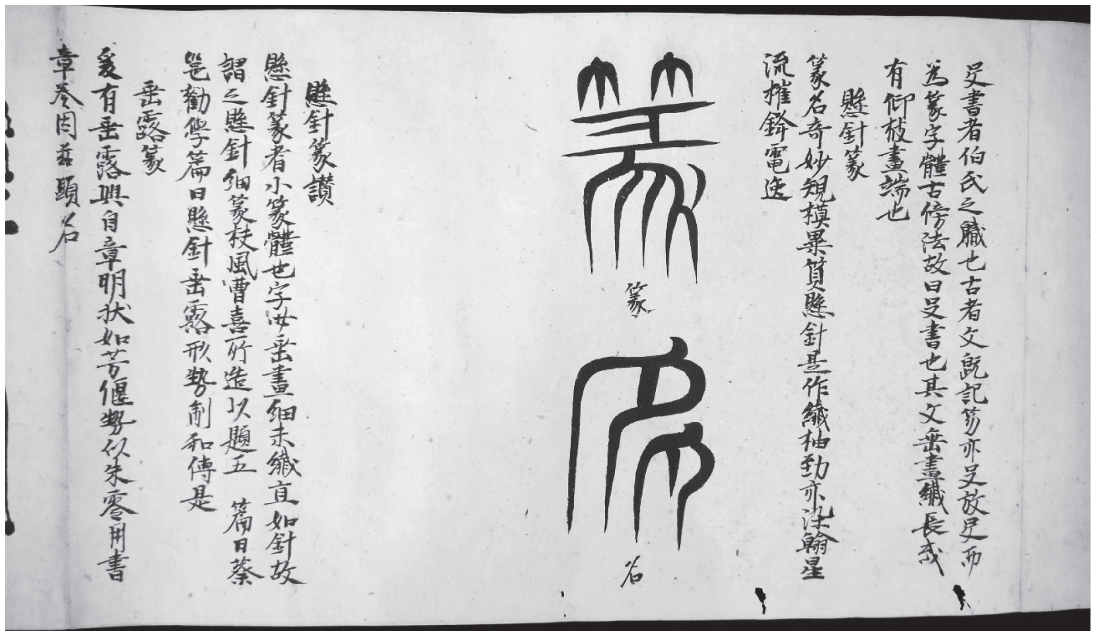 殳書者伯氏之職也古者文既記笏亦殳放殳而
為篆字體古傍法故曰殳書也其文垂畫纖長或
有仰枝畫端也
懸針篆
篆名奇妙規模畢質懸針是作纖杣勁亦染翰星
流摧鋒電迭
篆
篆
名
名
懸針篆讚
懸針篆者小篆體也字必垂畫細末纖直如針故
謂之懸針細篆扶風曹喜所造以題五 篇曰蔡
邕勸學篇曰懸針垂露形勢制和傳是
垂露篆
爰有垂露興自章明狀如芳偃勢似朱零用書
章奏因茲顯名